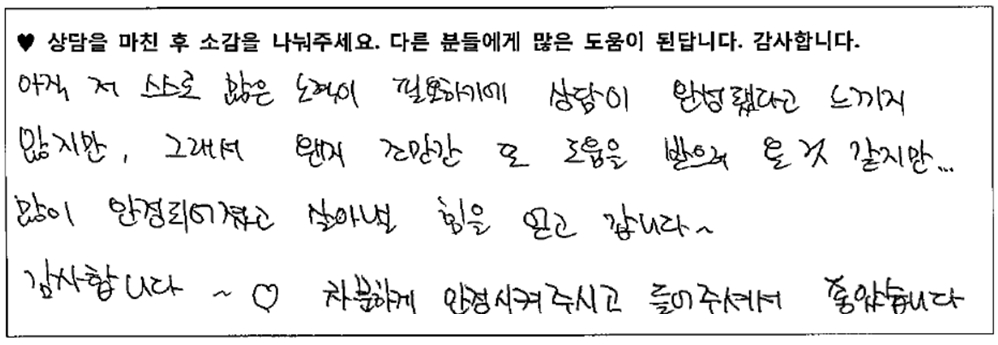 ♥ 상담을 마친 후 소감을 나눠주세요. 다른 분들에게 많은 도움이 된답니다. 감사합니다.
아직 저 스스로 많은 노력이 필요하기에 상담이 완성됐다고 느끼지
않지만, 그래서 왠지 조만간 또 도움을 받으러 올 것 같지만...
많이 안정되어졌고 살아낼 힘을 얻고 갑니다~
감사합니다 ~ ♡ 차분하게 안정시켜주시고 들어주셔서 좋았습니다